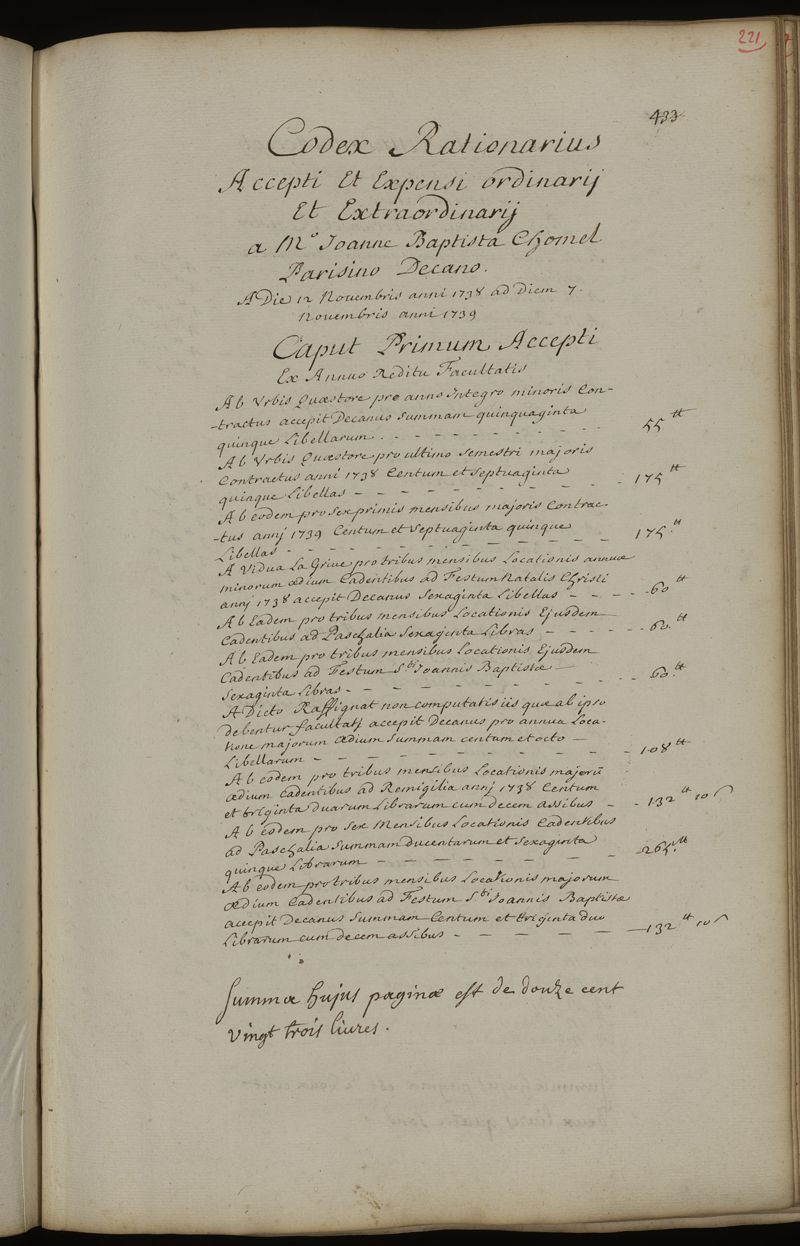 221
433
Codex Rationarius
Accepti Et Expensi ordinarij
Et Extraordinarij
a M.o Joanne Baptista Chomel
Parisino Decano.
A Die 12 Novembris anni 1738 ad Diem 7.
Novembris anni 1739
Caput Primum Accepti
Ex Annuo Reditu Facultatis
Ab Vrbis Quæstore pro anno Integro minoris Con-
-tractus accepit Decanus Summam quinquaginta
quinque Libellarum. - - - - - - - - - 55 tt
Ab Vrbis Quæstore pro ultimo semestri majoris
Contractus anni 1738 Centum et Septuaginta
quinque Libellas - - - - - - - - - 175 tt
Ab eodem pro sex primis mensibus majoris Contrac-
-tus annj 1739 Centum et Septuaginta quinque
Libellas - - - - - - - - - - 175 tt
A Vidua La Grive pro tribus mensibus Locationis annuæ
minorum ædium Cadentibus ad Festum Natalis Christi
annj 1738 accepit Decanus Sexaginta Libellas - - - - 60 tt
Ab Eadem pro tribus mensibus Locationis Ejusdem
Cadentibus ad Paschalia Sexaginta Libras - - - - - 60 tt
Ab Eadem pro tribus mensibus Locationis Ejusdem
Cadentibus ad Festum S.ti Joannis Baptistæ -
Sexaginta Libras - - - - - - - - 60 tt
A Dicto Raffignat non computatis iis quæ ab ipso
debentur facultatj accepit Decanus pro annua Loca-
tione majorum ædium Summam centum et octo -
Libellarum - - - - - - - - - 108 tt
Ab eodem pro tribus mensibus Locationis majorū
ædium Cadentibus ad Remigilia annj 1738 Centum
et triginta duarum Librarum cum decem assibus - - 132 tt 10 s
Ab eodem pro sex Mensibus Locationis Cadentibus
ad Paschalia Summam Ducentarum et Sexaginta
quinque Librarum - - - - - - - - 265 tt
Ab eodem pro tribus mensibus Locationis majorum
Ædium Cadentibus ad Festum S.ti Joannis Baptistæ
accepit Decanus Summam Centum et triginta duo
Librarum cum decem assibus - - - - - - 132 tt 10 s
Summa hujus paginæ est de douze cent
vingt trois livres.